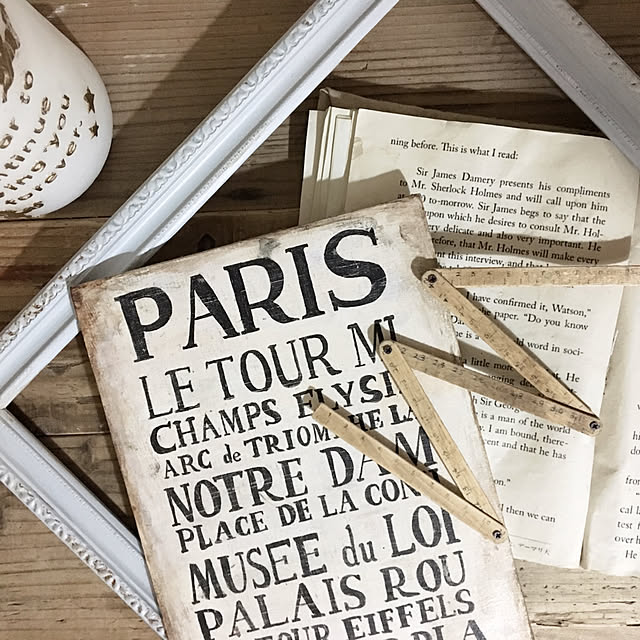 ar to
ntinue
g you
forever.
ning before. This is what I read:
Sir James Damery presents his compliments
to Mr. Sherlock Holmes and will call upon him
to-morrow. Sir James begs to say that the
upon which he desires to consult Mr. Hol-
delicate and also very important. He
fore, that Mr. Holmes will make every
nt this interview, and that
I have confirmed it, Watson,"
the paper. "Do you know
Dam
ld word in soci-
a little more
nging de t. He
h Sir Georg
is a man of the world
I am bound, there-
cent and that he has
on."
d then we can
PARIS
LE TOUR MI
CHAMPS ELYSE
ARC de TRIOMPHE LA
NOTRE DAM
PLACE DE LA CON
MUSEE du LOI
PALAIS ROU
TOUR EIFFELS
PLA
fron
cal la
test f
over h
He